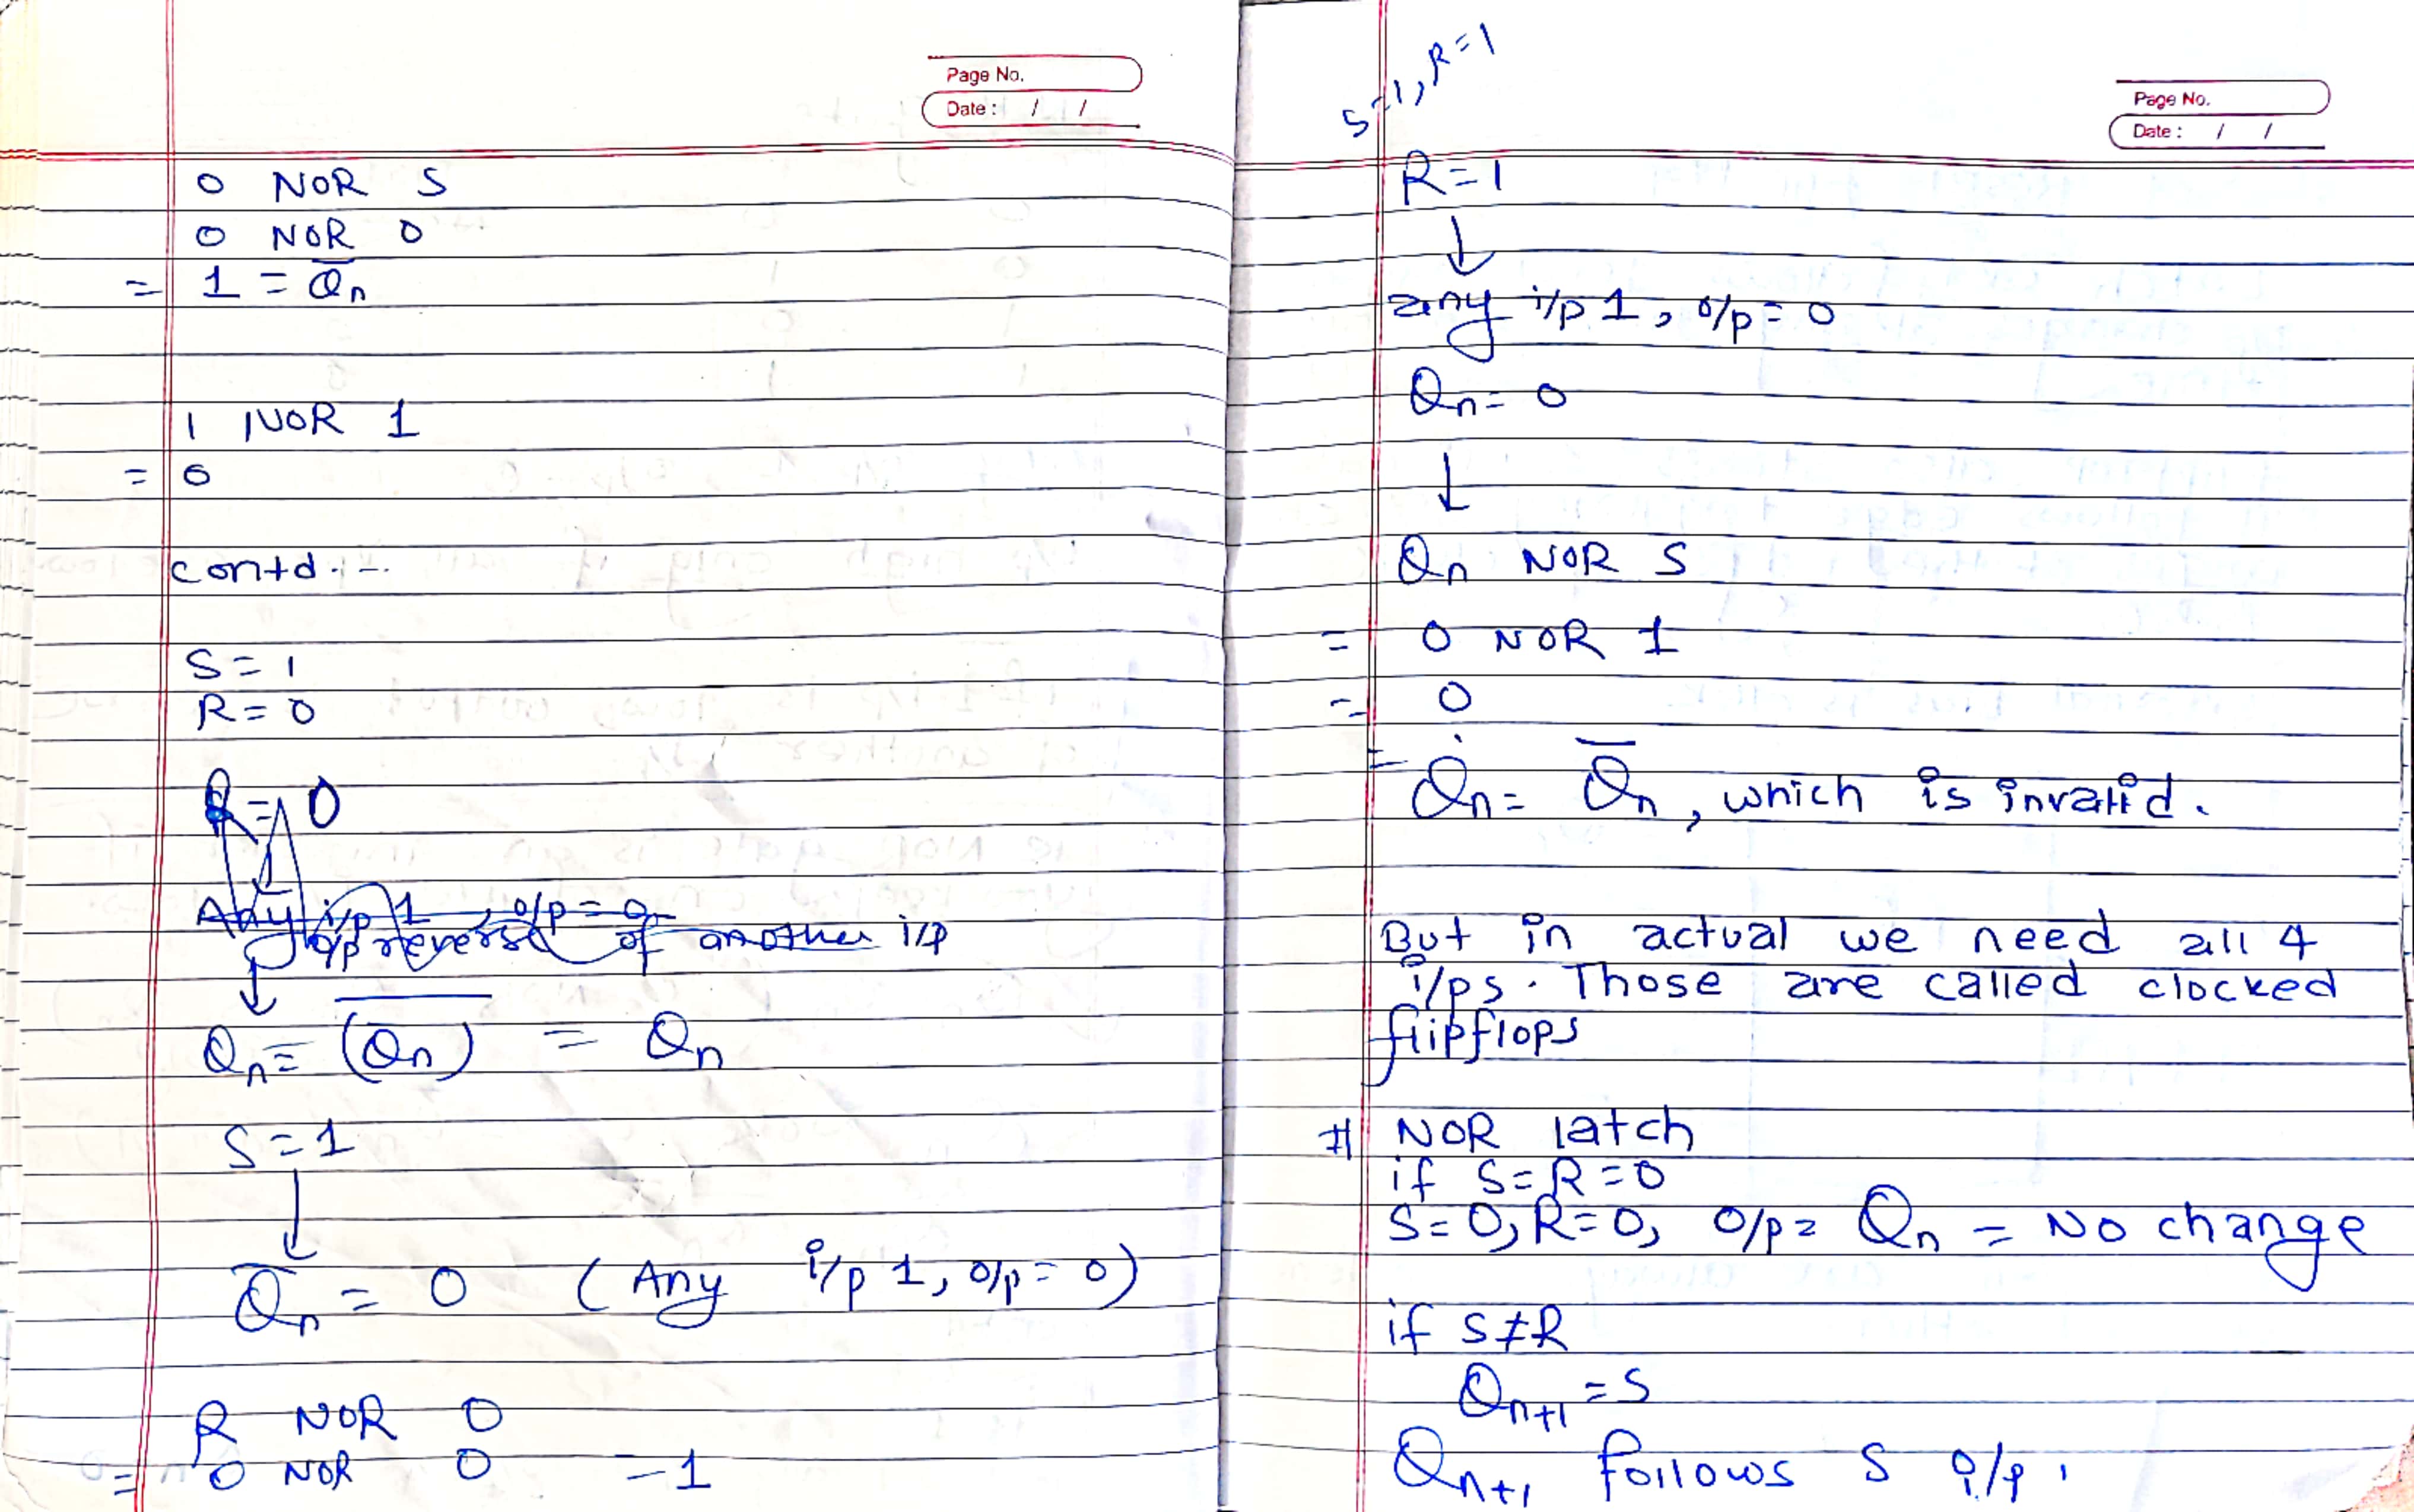 Page No.
Date : / /
0 NOR S
0 NOR 0
= 1 = Q̅n
1 NOR 1
= 0
contd...
S = 1
R = 0
R = 0
Any i/p 1, o/p = 0
o/p reverse of another i/p
Qn = (Q̅n)̅ = Qn
S = 1
↓
Q̅n = 0 (Any i/p 1, o/p = 0)
R NOR 0
= 0 NOR 0 = 1
Page No.
Date : / /
S=1, R=1
R=1
↓
any i/p 1, o/p = 0
Qn = 0
↓
Qn NOR S
= 0 NOR 1
= 0
= Qn = Q̅n, which is invalid.
But in actual we need all 4
i/ps. Those are called clocked
flipflops
# NOR latch
if S=R=0
S=0, R=0, o/p = Qn = No change
if S≠R
Qn+1 = S
Qn+1 follows S i/p.